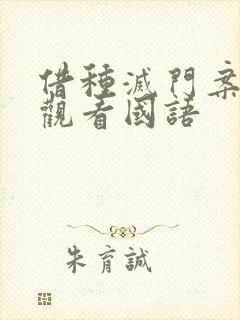 借種滅門案
觀看國語
朱育誠